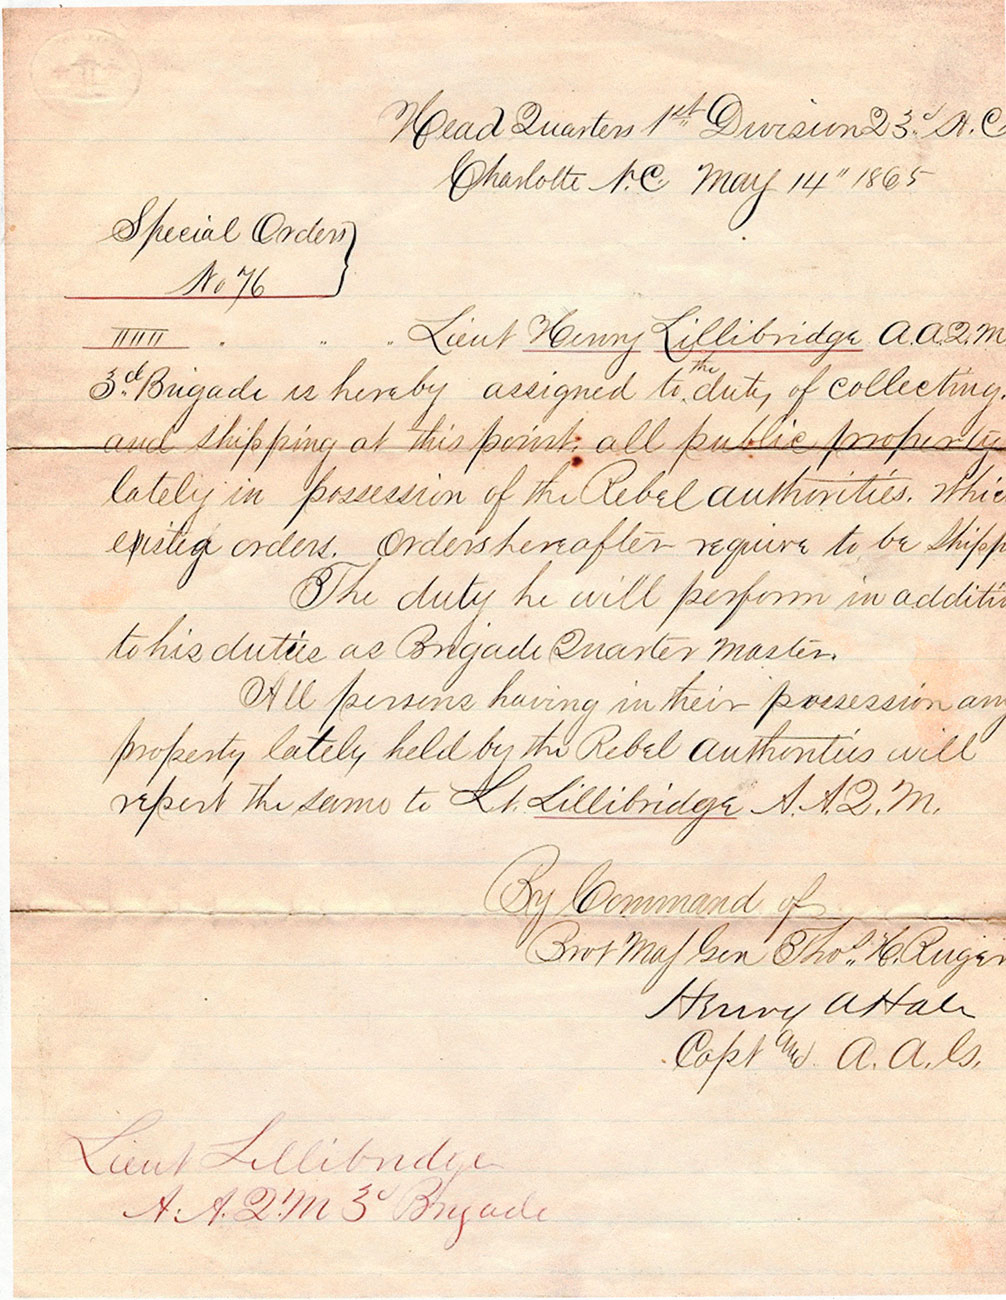 Head Quarters 1st Division 23d A.C
Charlotte N.C. May 14" 1865
Special Orders
No 76
IIIIII " " " Lieut Henry Lillibridge A.A.Q.M
3d Brigade is hereby assigned to the duty of collecting
and shipping at this point, all public property
lately in possession of the Rebel authorities. Whic
existing orders. Orders hereafter require to be shipp
The duty he will perform in additi
to his duties as Brigade Quarter Master.
All persons having in their possession any
property lately held by the Rebel authorities will
report the same to Lt. Lillibridge A.A.Q.M.
By Command of
Brvt Maj Gen Thos. H. Ruger
Henry A Hale
Capt and A.A.G.
Lieut Lillibridge
A.A.Q.M 3d Brigade